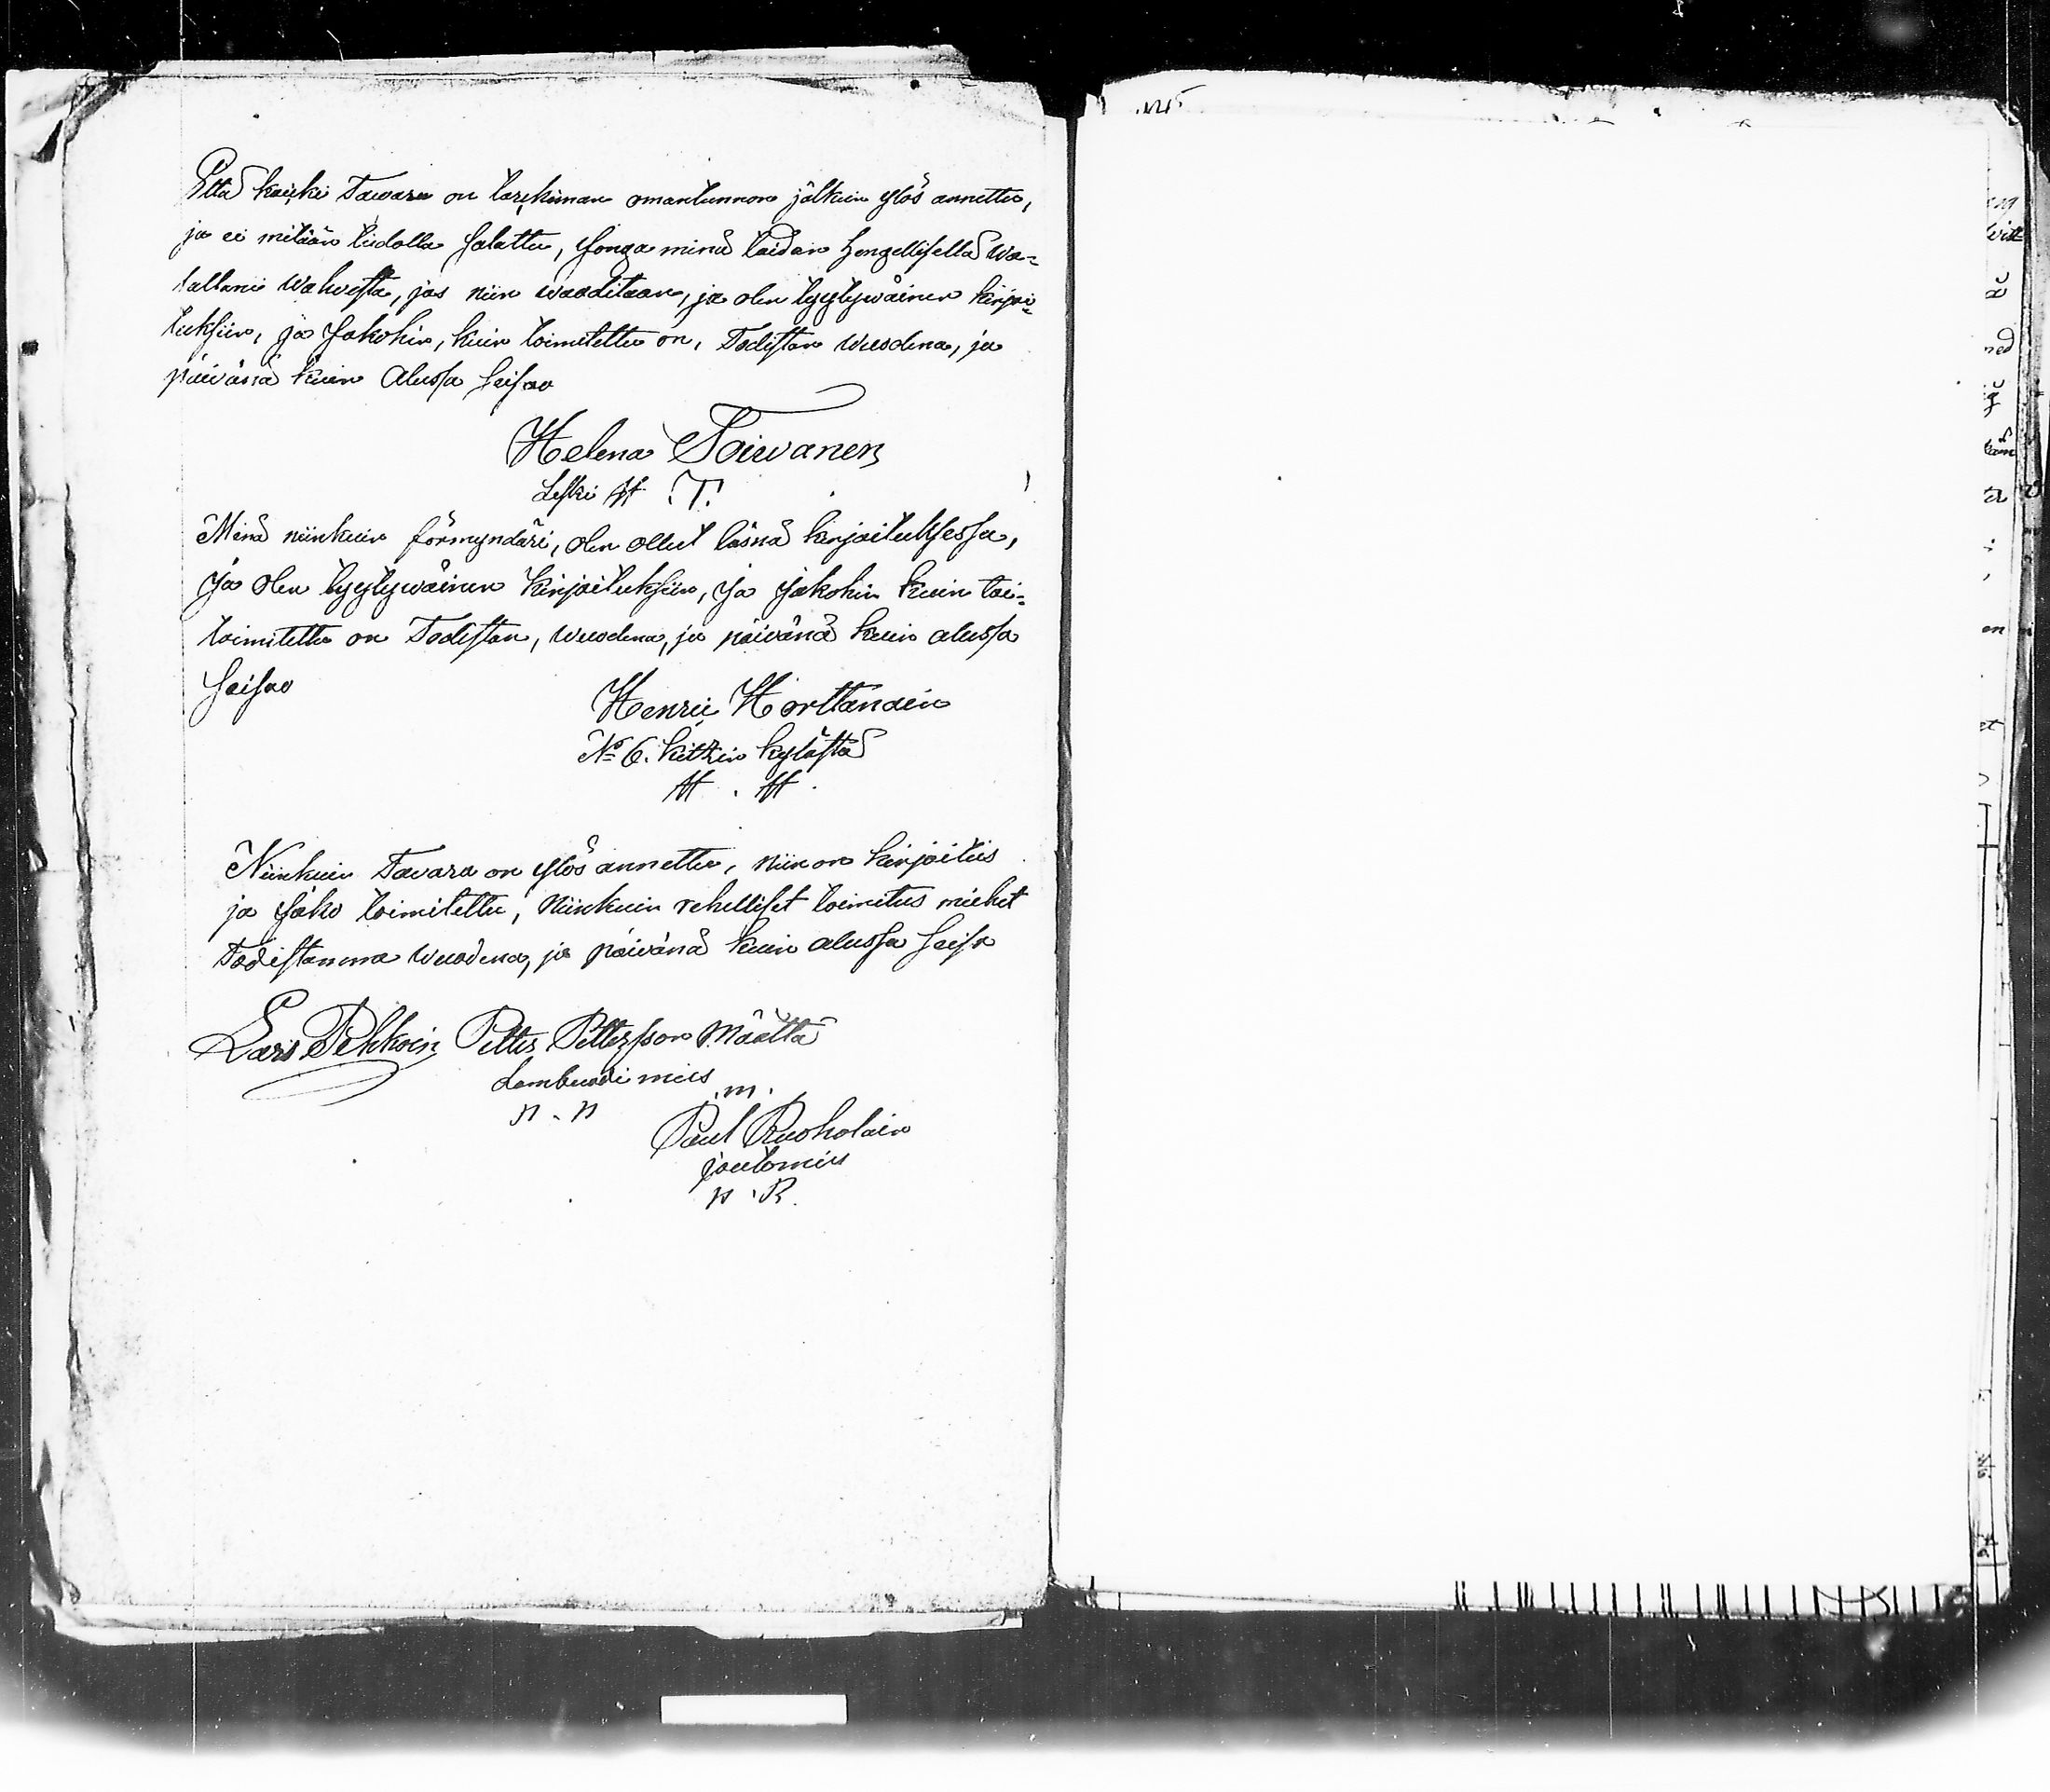 Että kaikki Tawara on tarkiman omantunnon jälkein ylös annettu,
ja ei mitään tiedolla salattu, jonga minä taidan hengellisellä wa=
lallani wahvista, jos niin waaditaan, ja olen tyytywäinen kirjoi=
tuksiin, ja jakohin, kuin toimitettu on, Todistan wuodena, ja
päiwänä kuin alussa seisoo
Helena Toiwanen
Leski H. T.
Minä niinkuin förmyndäri, olen ollut läsnä kirjoituksessa,
ja olen tyytywäinen kirjoituksiin, ja jakohin kuin toi=
toimitettu on Todistan, wuodena, ja päiwänä kuin alussa
seisoo
Henrii Horttanain
No 6. kylästä
H. H.
Niinkuin Tavara on ylös annettu, niin on kirjoitus
ja jako toimitettu, niinkuin rehelliset toimitus miehet
Todistamma wuodena, ja päivänä kuin alussa seiso
Lars Pehkoin Petter Pettersson Määttä
Lambuodi mies
P. P. M.
Paul Ruoholain
joutomies
P. R.